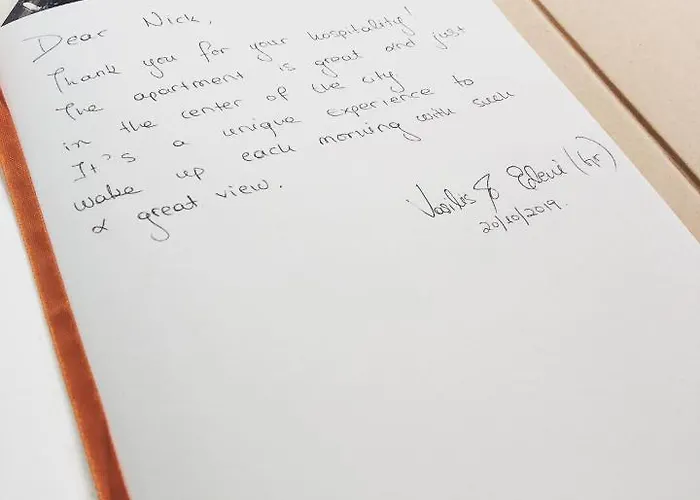 Dear Nick,
Thank you for your hospitality!
The apartment is great and just
in the center of the city
It's a unique experience to
wake up each morning with such
a great view.
Vasilis & Eleni (Gr)
20/10/2019.